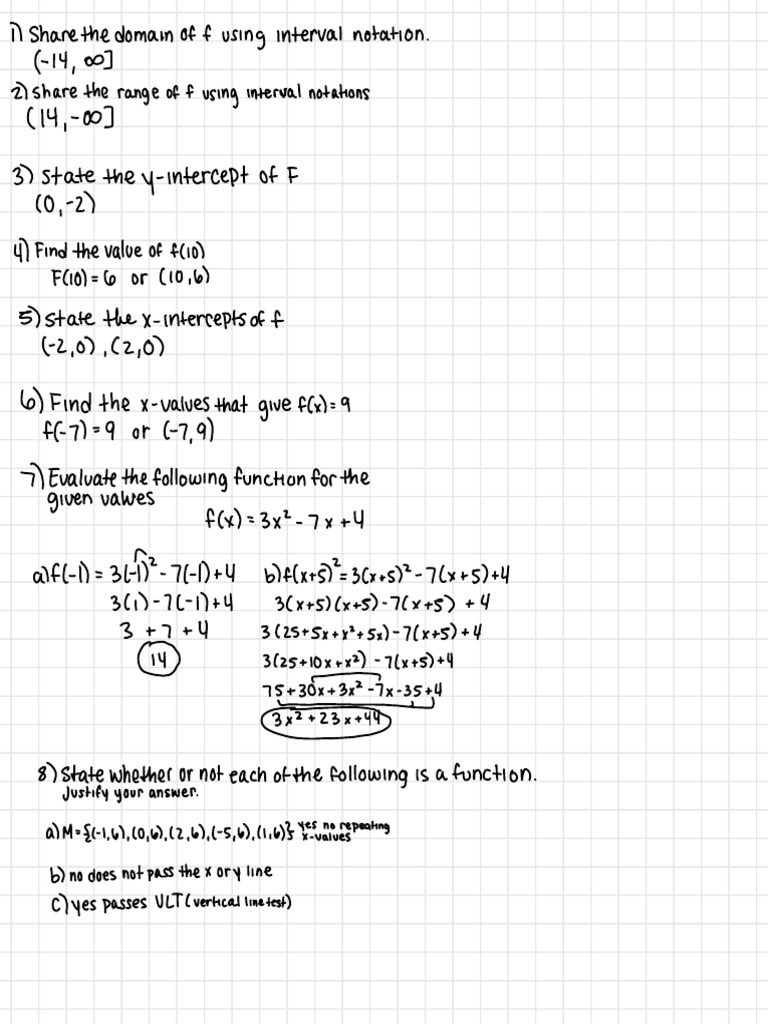 1) Share the domain of f using interval notation.
(-14, ∞]
2) Share the range of f using interval notations
(14, -∞]
3) State the y-intercept of F
(0,-2)
4) Find the value of f(10)
F(10) = 6 or (10,6)
5) State the x-intercepts of f
(-2,0), (2,0)
6) Find the x-values that give f(x) = 9
f(-7) = 9 or (-7,9)
7) Evaluate the following function for the
given values
f(x) = 3x² - 7x + 4
a) f(-1) = 3(-1)² - 7(-1) + 4
3(1) - 7(-1) + 4
3 + 7 + 4
14
b) f(x+5)² = 3(x+5)² - 7(x+5) + 4
3(x+5)(x+5) - 7(x+5) + 4
3(25 + 5x + x² + 5x) - 7(x+5) + 4
3(25 + 10x + x²) - 7(x+5) + 4
75 + 30x + 3x² - 7x - 35 + 4
3x² + 23x + 44
8) State whether or not each of the following is a function.
Justify your answer.
a) M = {(-1,6), (0,6), (2,6), (-5,6), (1,6)} yes no repeating
x-values
b) no does not pass the x or y line
c) yes passes VLT (vertical line test)